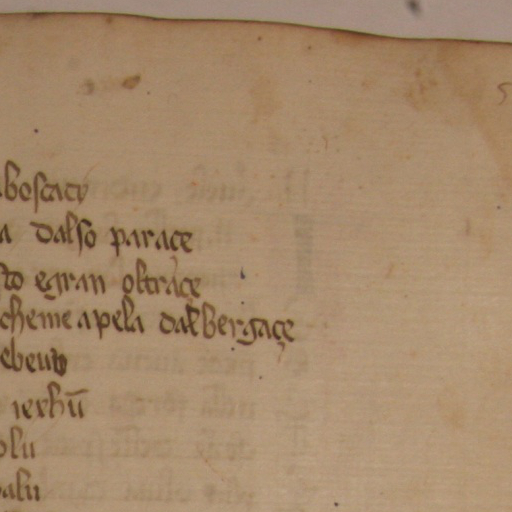 boscacv
a dalso paraçe
sto egran oltraçe
cheme apela dalbergaçe
ebeuv
ierhū
olu
alu